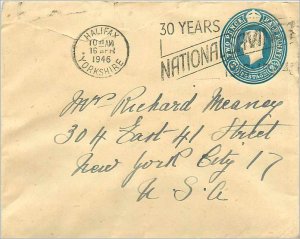 HALIFAX
10 AM
16 APR
1946
YORKSHIRE
30 YEARS
NATIONAL
Mr Richard Meaney
304 East 41 Street
New York City 17
U.S.A